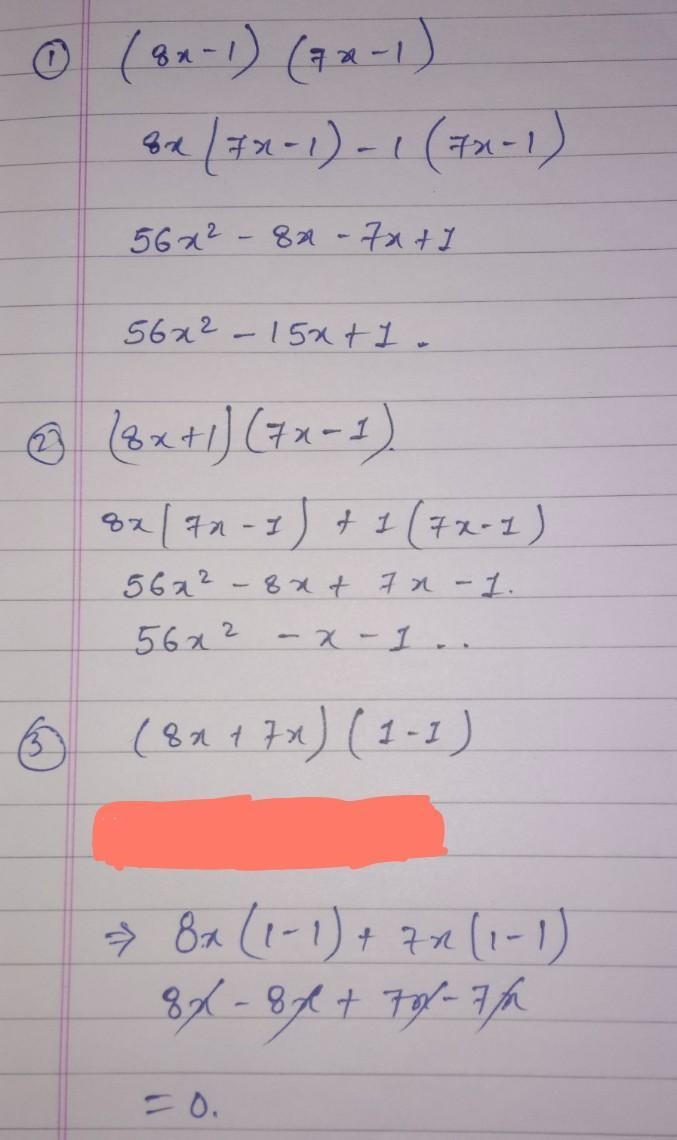 ① (8x-1) (7x-1)
8x(7x-1)-1(7x-1)
56x² - 8x - 7x+1
56x² - 15x+1.
② (8x+1)(7x-1).
8x(7x-1) + 1(7x-1)
56x² - 8x + 7x - 1.
56x² - x - 1 ..
③ (8x + 7x) (1-1)
⇒ 8x(1-1) + 7x(1-1)
8x - 8x + 7x - 7x
= 0.